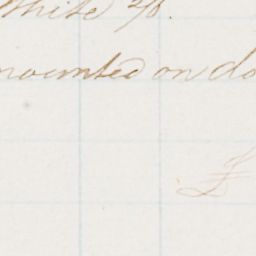 White 2/6.
mounted on do
£